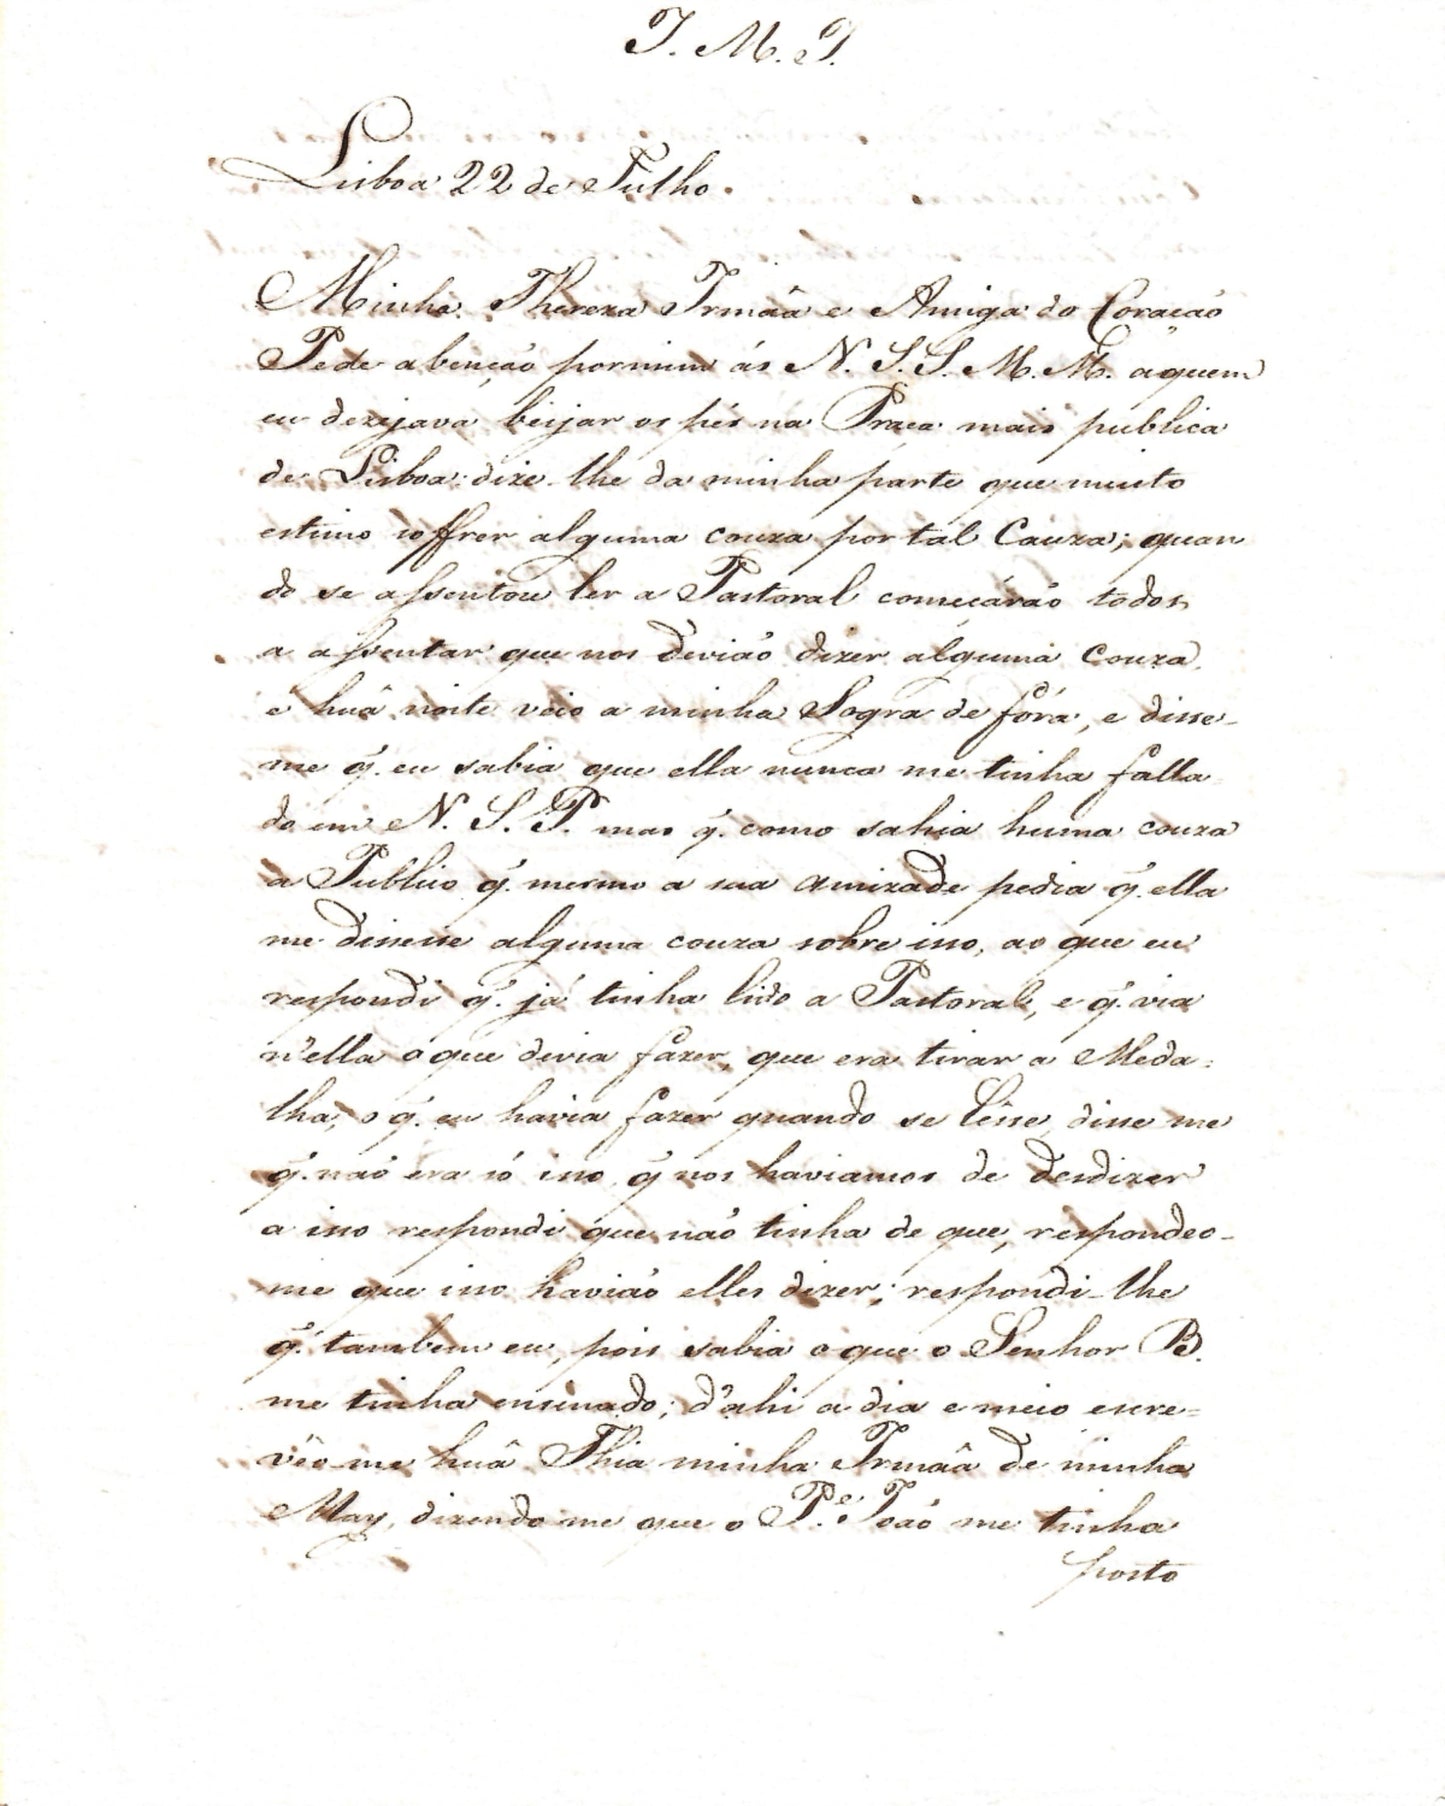 J. M. J.
Lisboa 22 de Julho.
Minha Thereza Irmãa e Amiga do Coração
Pede a benção por mim ás N. S. S. M. M. aquem
eu dezejava beijar os pés na Praça mais publica
de Lisboa: dize-lhe da minha parte que muito
estimo soffrer alguma couza por tal Cauza; quan
do se assentou ler a Pastoral começárão todos
a assentar que nos devião dizer alguma couza,
e huã noite veio a minha Sogra de fóra, e disse-
me q̃. eu sabia que ella nunca me tinha falla-
do em N. S. P. mas q̃. como sahia huma couza
a Publico q̃. mesmo a sua amizade pedia q̃. ella
me dissesse alguma couza sobre isso, ao que eu
respondi q̃. já tinha lido a Pastoral, e q̃. via
n'ella o que devia fazer, que era tirar a Meda-
lha, o q̃. eu havia fazer quando se lêsse, disse me
q̃. não era só isso, q̃ nos haviamos de desdizer
a isso respondi que não tinha de que, respondeo-
me que isso havião elles dizer; respondi-lhe
q̃. tambem eu, pois sabia o que o Senhor B.
me tinha ensinado; d'ahi a dia e meio escre-
vêo-me huã Thia minha Irmãa de minha
May, dizendo me que o P.e João me tinha
posto